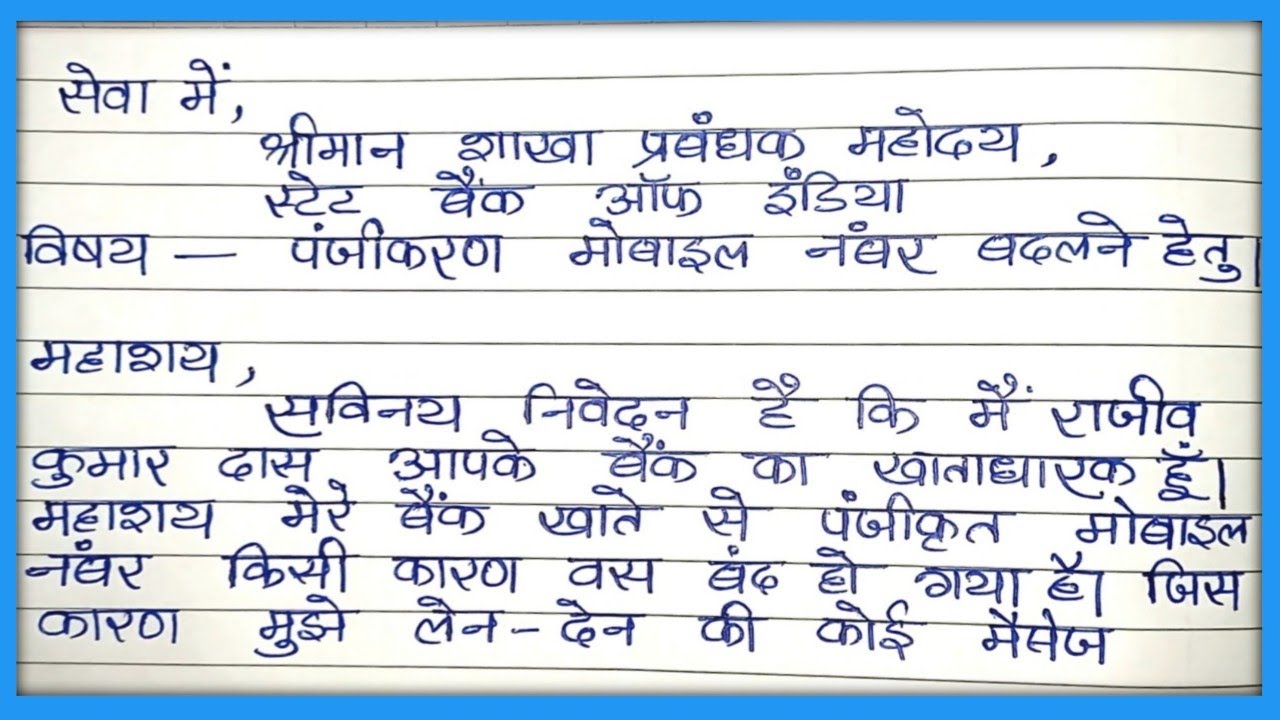 सेवा में,
श्रीमान शाखा प्रबंधक महोदय,
स्टेट बैंक ऑफ इंडिया
विषय — पंजीकरण मोबाइल नंबर बदलने हेतु।
महाशय,
सविनय निवेदन है कि मैं राजीव
कुमार दास आपके बैंक का खाताधारक हूँ।
महाशय मेरे बैंक खाते से पंजीकृत मोबाइल
नंबर किसी कारण वस बंद हो गया है। जिस
कारण मुझे लेन-देन की कोई मैसेज